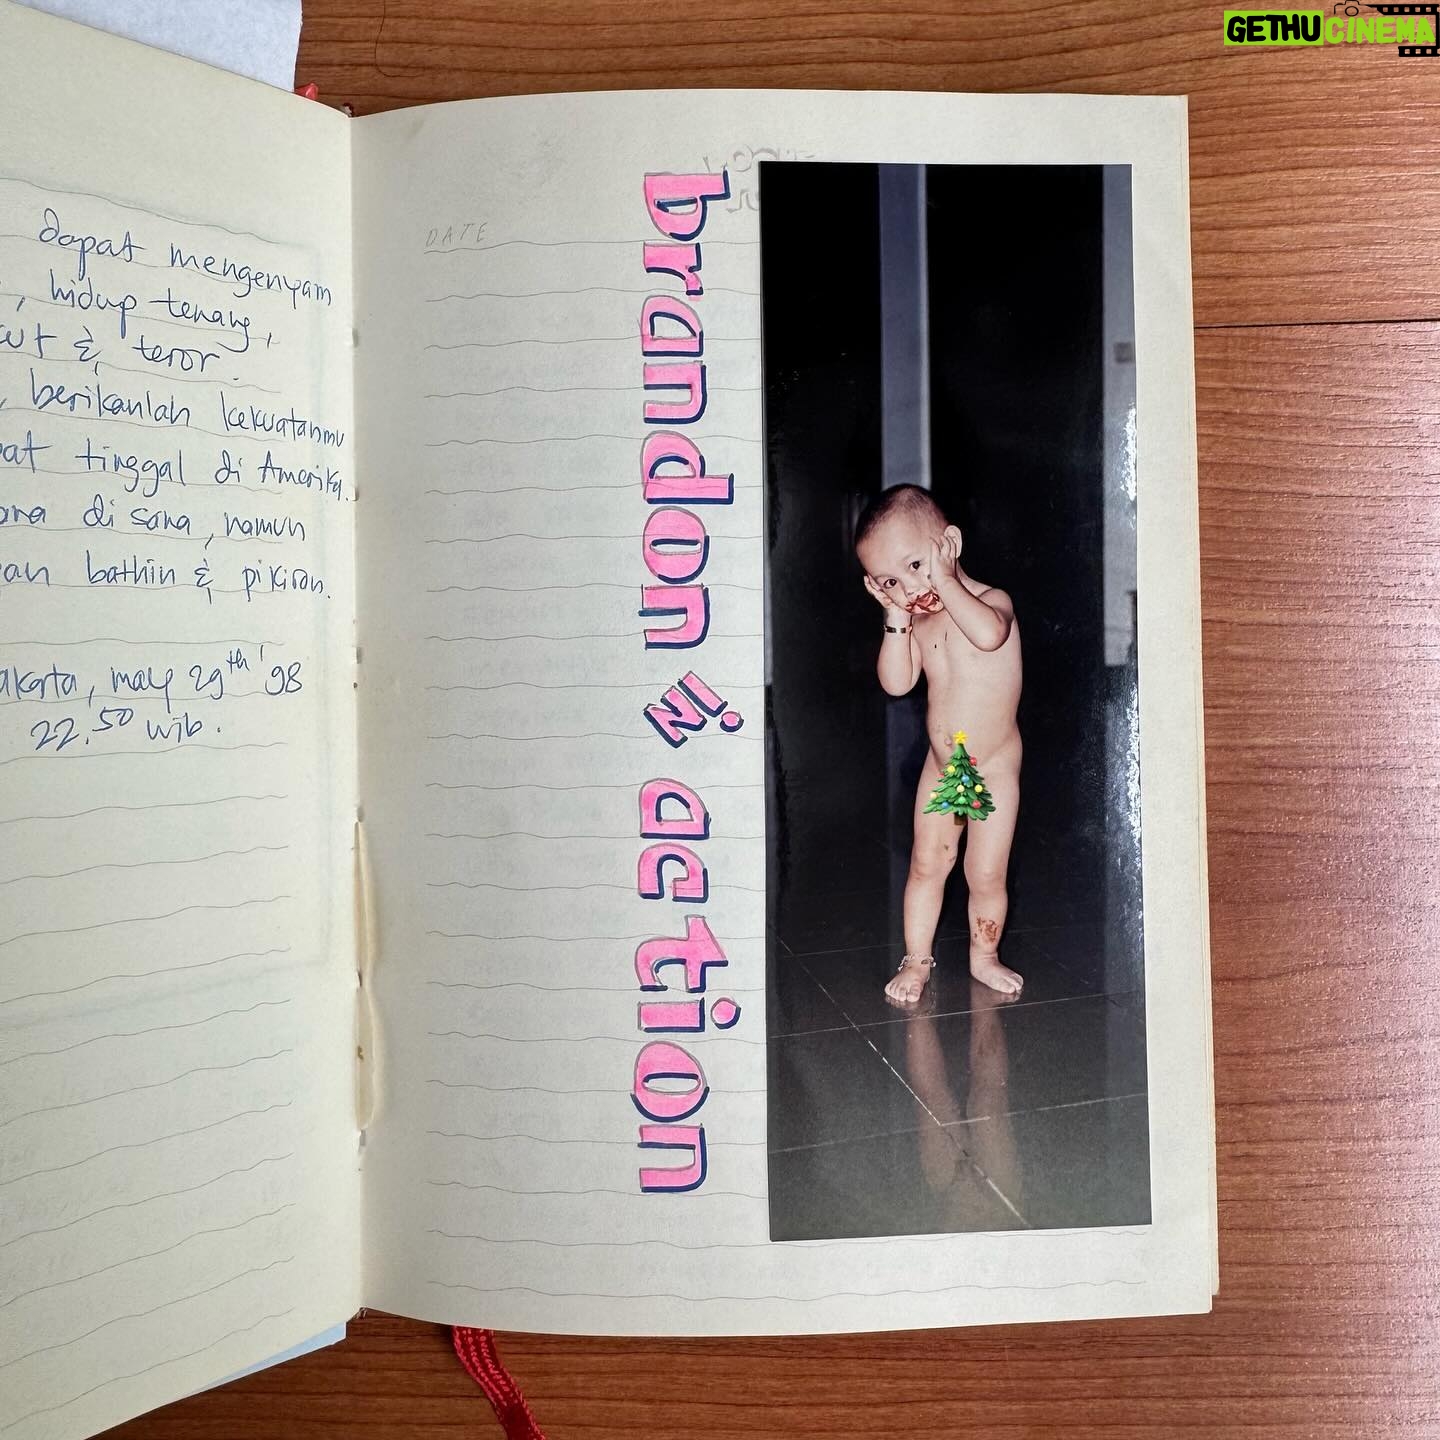 GETHUCINEMA
dapat mengenyam
, hidup tenang,
& teror.
, berikanlah kekuatanmu
tinggal di Amerika.
di sana, namun
bathin & pikiran.
akarta, may 29th '98
22.50 wib.
DATE
brandon in action